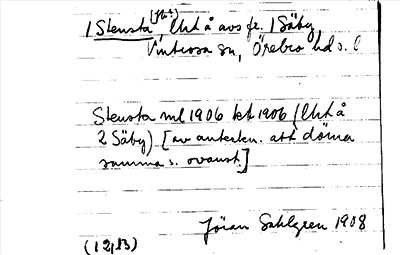 1 Stensta (fht), lht å avs fr. 1 Säby,
Vintrosa sn, Örebro hd s. l
Stensta ml 1906 kb 1906 (lht å
2 Säby) [av anteckn. att döma
samma s. ovanst.]
Jöran Sahlgren 1908
(12,13)